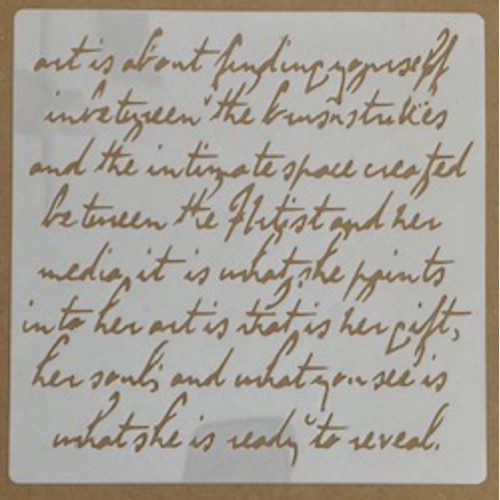 art is about finding yourself
inbetween the brushstrokes
and the intimate space created
between the Artist and her
media, it is what she paints
into her art is that is her gift,
her soul; and what you see is
what she is ready to reveal.